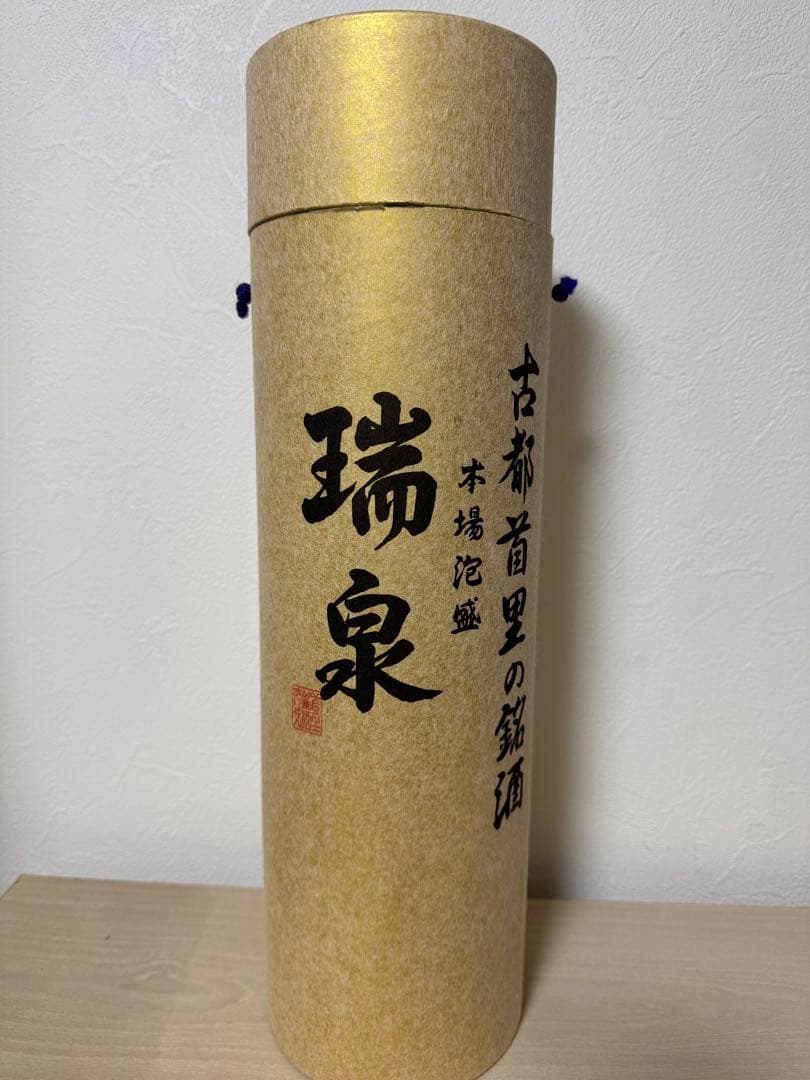 古都首里の銘酒
本場泡盛
瑞泉